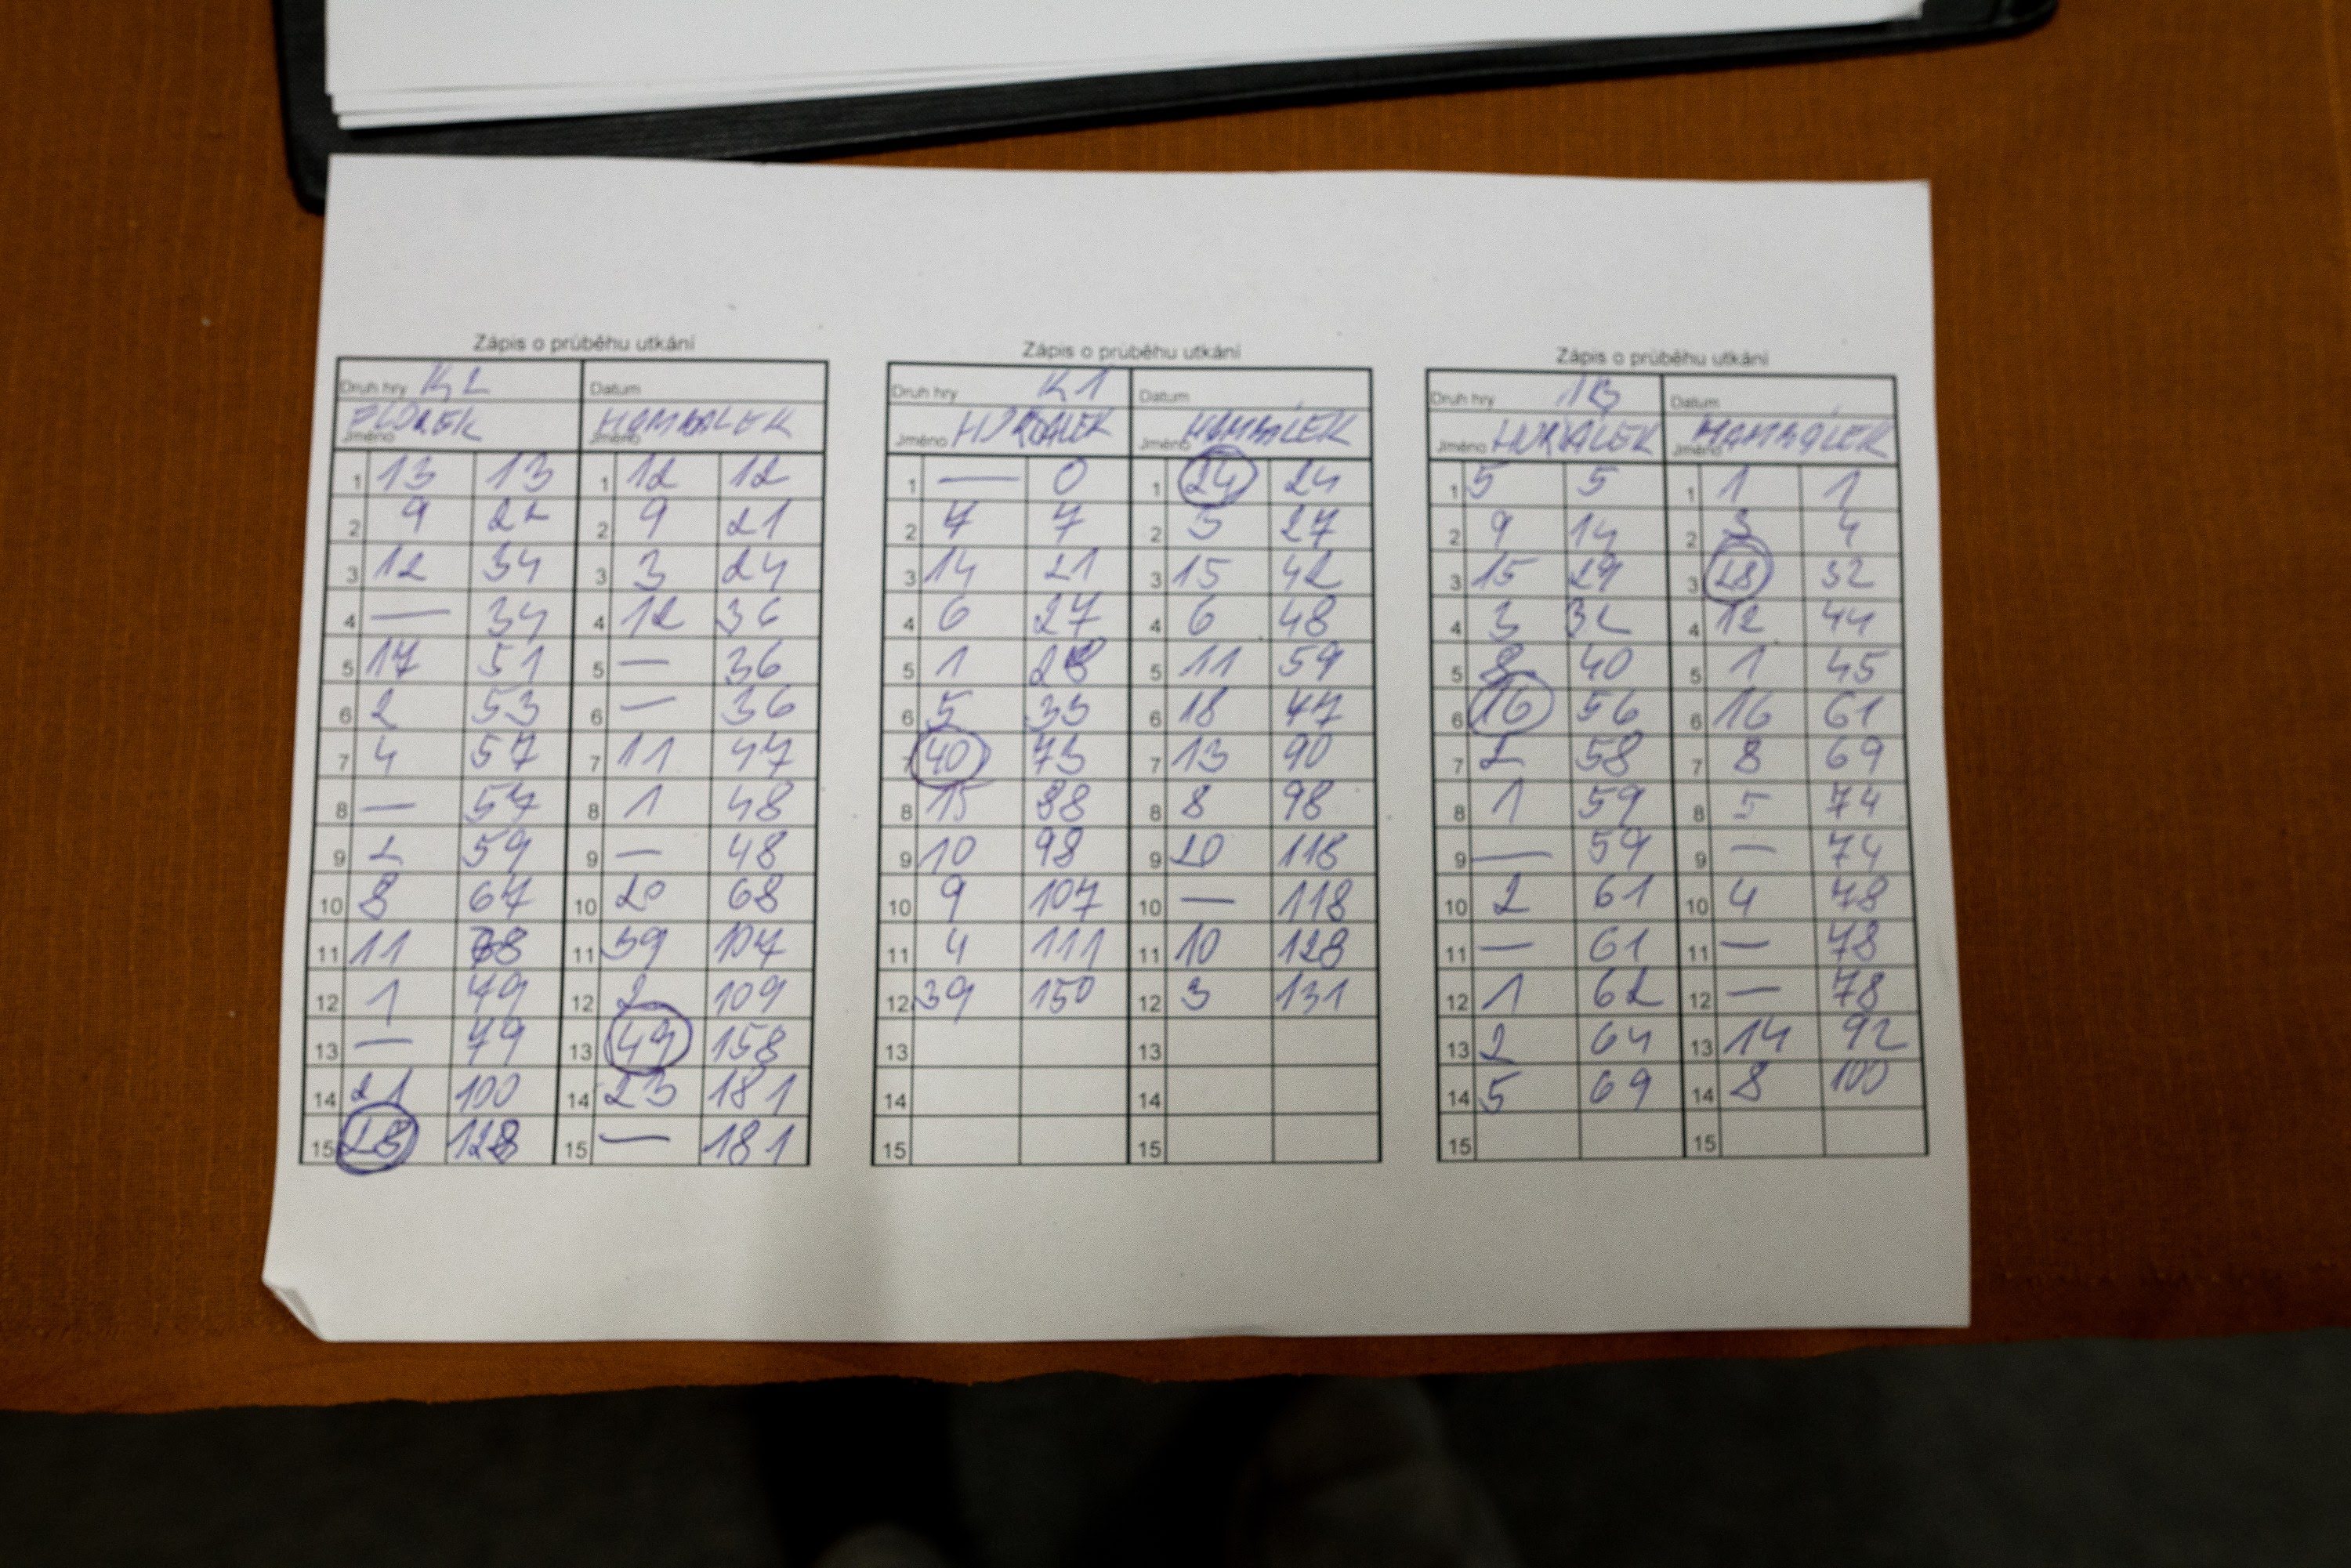 Zápis o průběhu utkání
Druh hry K2 Datum
Jméno FLOREK Jméno HAMBALEK
1 13 13 1 12 12
2 9 22 2 9 21
3 12 34 3 3 24
4 — 34 4 12 36
5 17 51 5 — 36
6 2 53 6 — 36
7 4 57 7 11 47
8 — 57 8 1 48
9 2 59 9 — 48
10 8 67 10 20 68
11 11 78 11 39 107
12 1 79 12 2 109
13 — 79 13 49 158
14 21 100 14 23 181
15 28 128 15 — 181
Zápis o průběhu utkání
Druh hry K1 Datum
Jméno HURTALEK Jméno HAMBÁLEK
1 — 0 1 24 24
2 7 7 2 3 27
3 14 21 3 15 42
4 6 27 4 6 48
5 1 28 5 11 59
6 5 33 6 18 77
7 40 73 7 13 90
8 15 88 8 8 98
9 10 98 9 20 118
10 9 107 10 — 118
11 4 111 11 10 128
12 39 150 12 3 131
13 13
14 14
15 15
Zápis o průběhu utkání
Druh hry 1B Datum
Jméno Jméno HAMBÁLEK
1 5 5 1 1 1
2 9 14 2 3 4
3 15 29 3 28 32
4 3 32 4 12 44
5 8 40 5 1 45
6 16 56 6 16 61
7 2 58 7 8 69
8 1 59 8 5 74
9 — 59 9 — 74
10 2 61 10 4 78
11 — 61 11 — 78
12 1 62 12 — 78
13 2 64 13 14 92
14 5 69 14 8 100
15 15